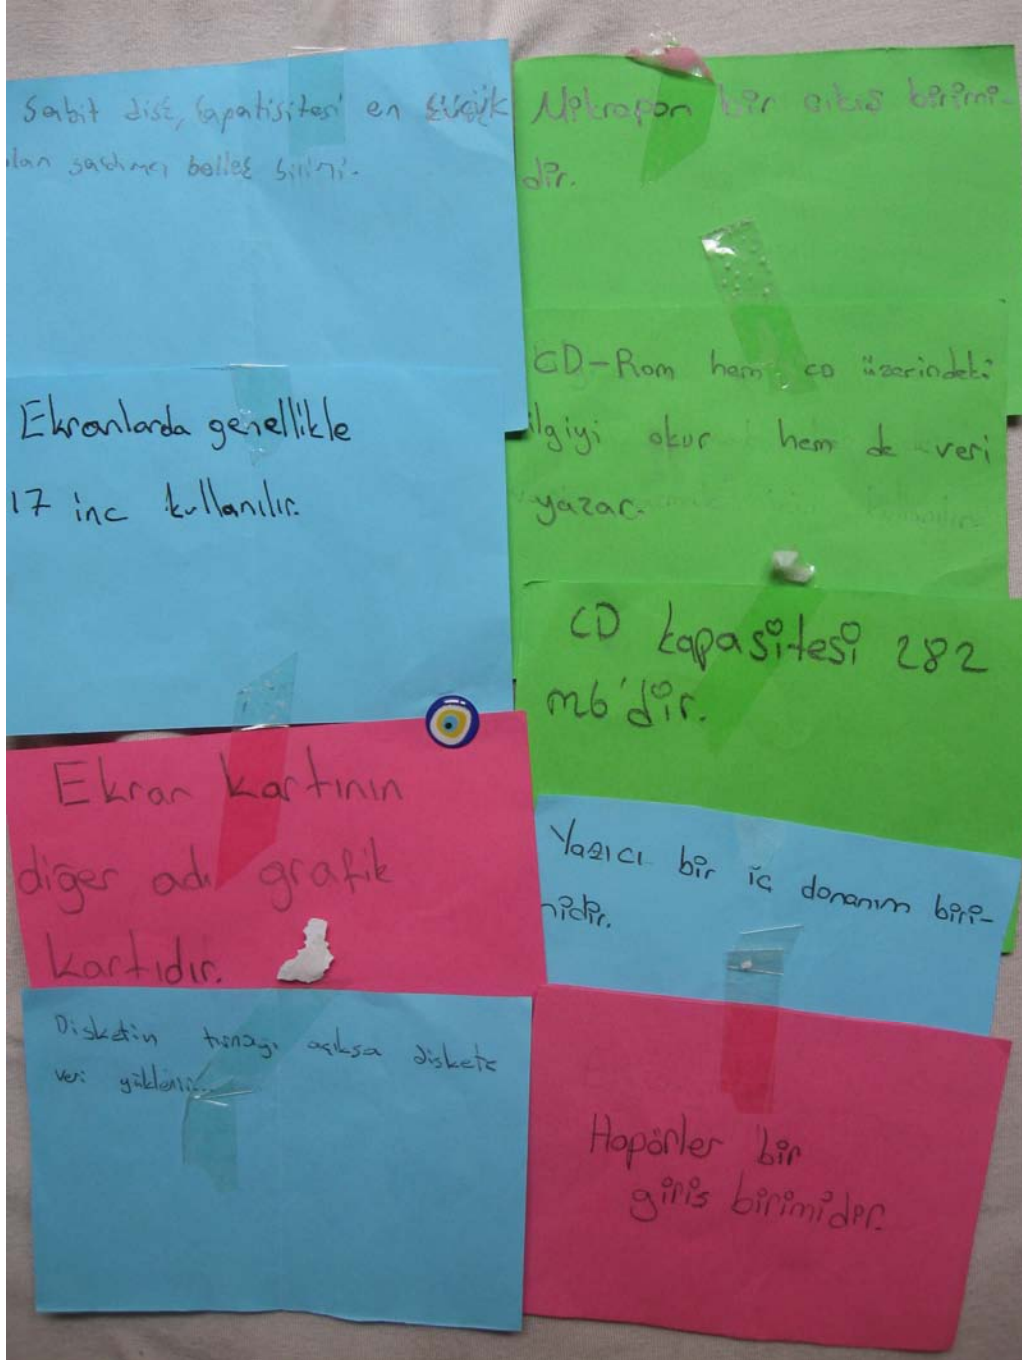 Sabit disk, kapatisitesi en küçük
lan saklmacı bellek birimi.
Ekranlarda genellikle
17 inc kullanılır.
Ekran kartının
diğer adı grafik
kartıdır.
Disketin tırnağı açıksa diskete
veri yüklenir...
Mikrapon bir çıkış birimi-
dir.
CD-Rom hem CD üzerindeki
ilgiyi okur hem de veri
yazar.
CD kapasitesi 282
mb'dir.
Yazıcı bir iç donanım biri-
midir.
Hopörler bir
giris birimidir.